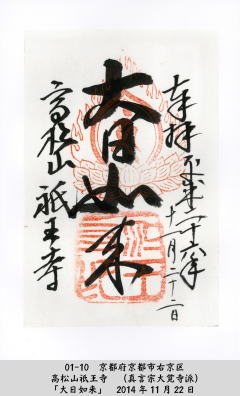 奉拝 平成二十六年
十一月二十二日
大日如来
高松山 祇王寺
01-10 京都府京都市右京区
高松山祇王寺 (真言宗大覚寺派)
「大日如来」 2014年11月22日